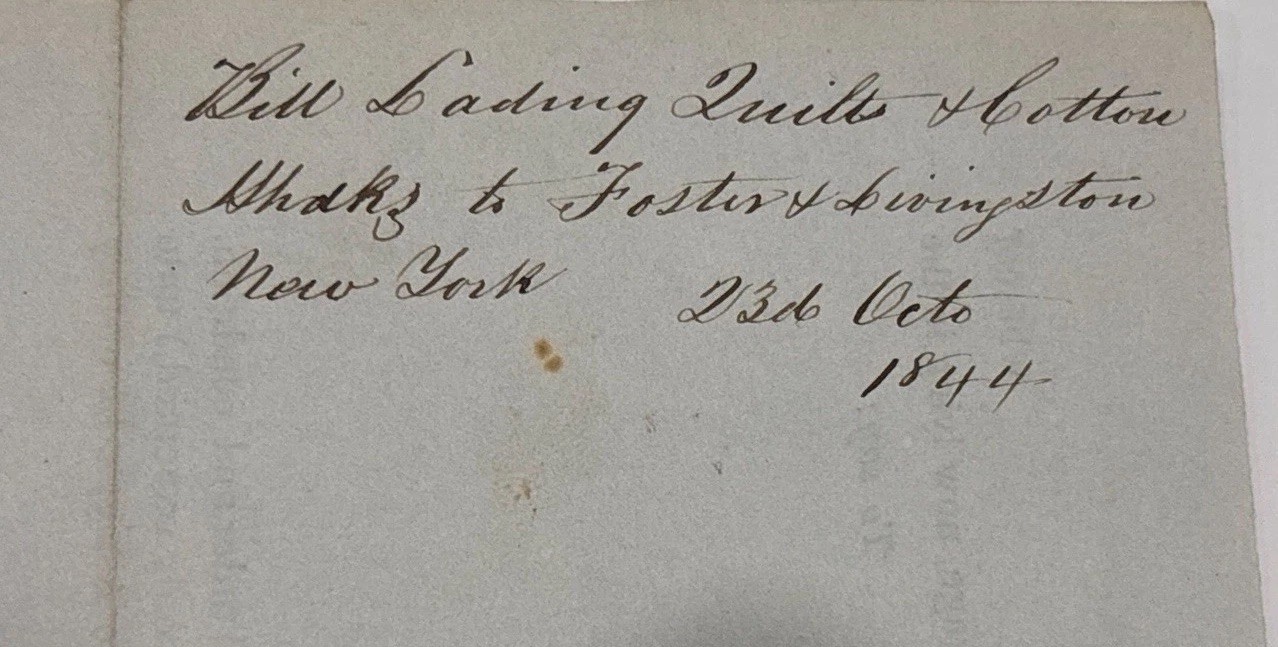 Bill Lading Quilts & Cotton
to Foster & Livingston
New York 23d Octo
1844